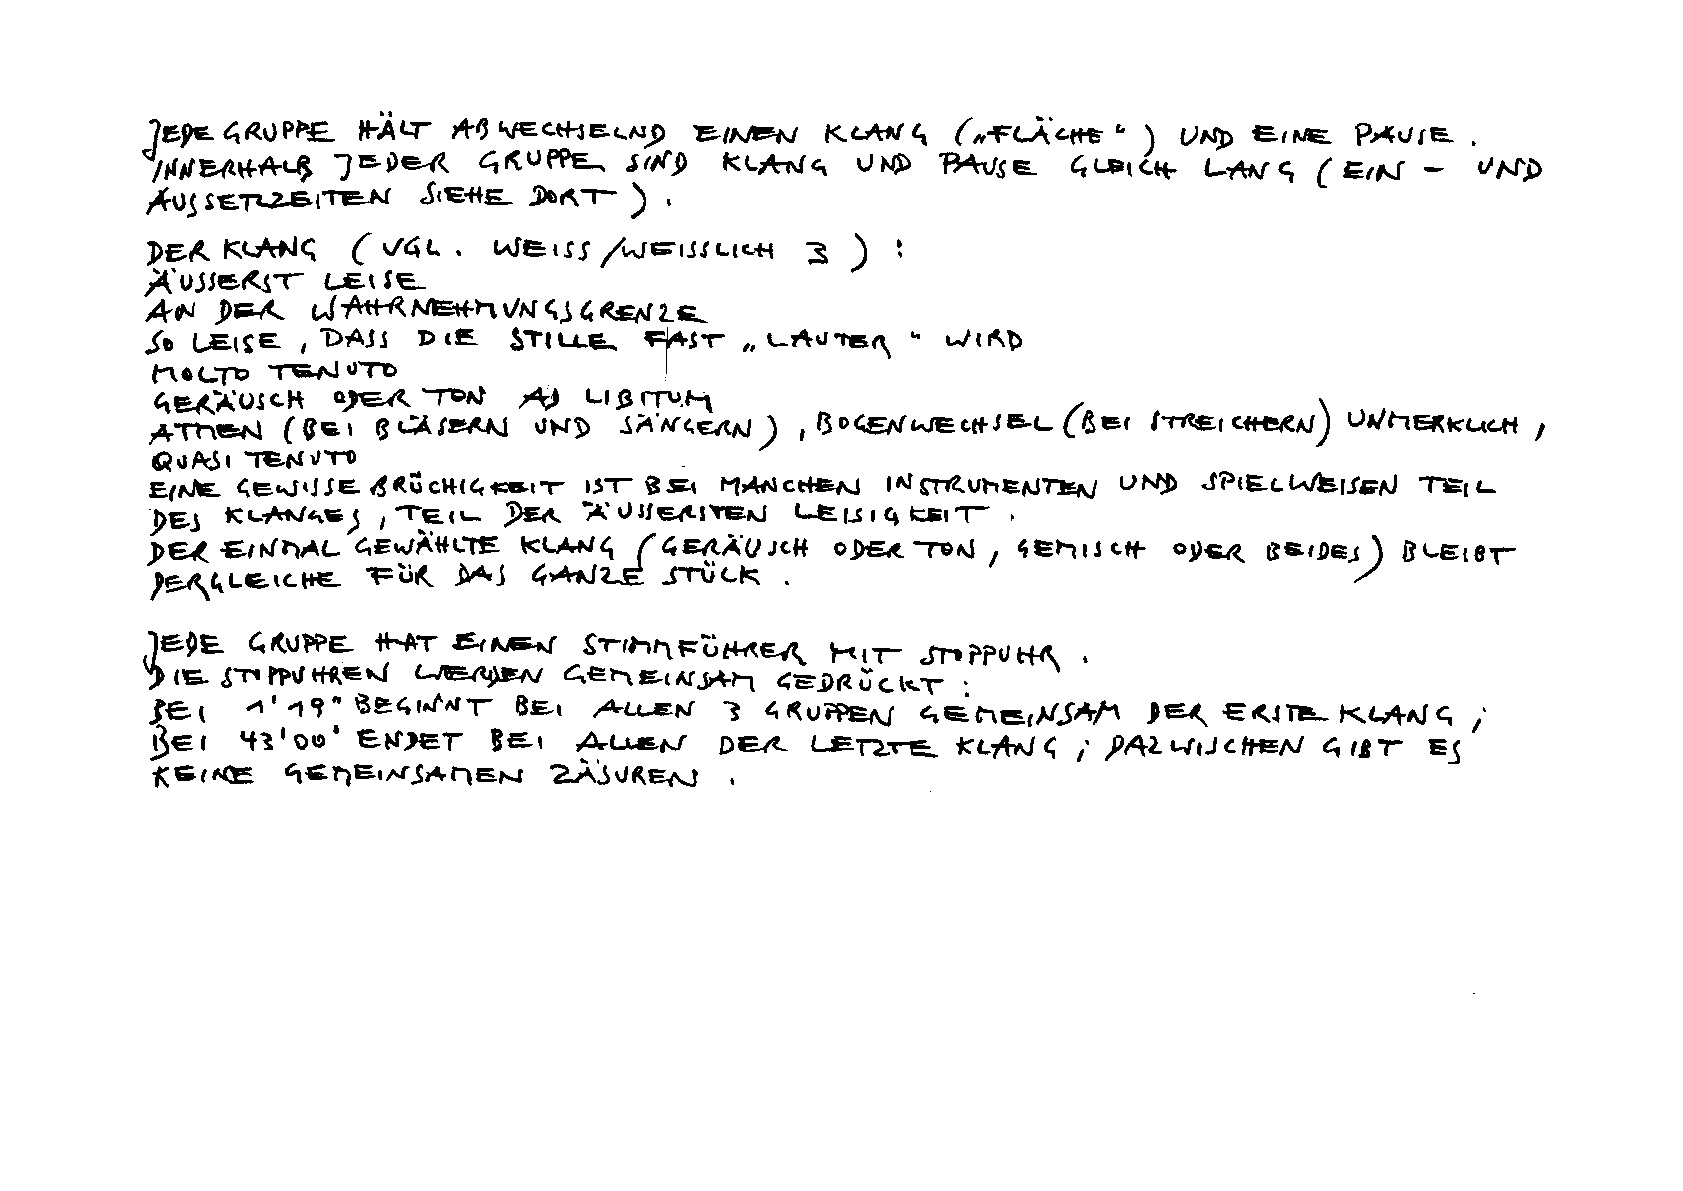 JEDE GRUPPE HÄLT ABWECHSELND EINEN KLANG („FLÄCHE“) UND EINE PAUSE.
INNERHALB JEDER GRUPPE SIND KLANG UND PAUSE GLEICH LANG (EIN- UND
AUSSETZZEITEN SIEHE DORT).
DER KLANG (VGL. WEISS/WEISSLICH 3):
ÄUSSERST LEISE
AN DER WAHRNEHMUNGSGRENZE
SO LEISE, DASS DIE STILLE FAST „LAUTER“ WIRD
MOLTO TENUTO
GERÄUSCH ODER TON AD LIBITUM
ATMEN (BEI BLÄSERN UND SÄNGERN), BOGENWECHSEL (BEI STREICHERN) UNMERKLICH,
QUASI TENUTO
EINE GEWISSE BRÜCHIGKEIT IST BEI MANCHEN INSTRUMENTEN UND SPIELWEISEN TEIL
DES KLANGES, TEIL DER ÄUSSERSTEN LEISIGKEIT.
DER EINMAL GEWÄHLTE KLANG (GERÄUSCH ODER TON, GEMISCH ODER BEIDES) BLEIBT
DERGLEICHE FÜR DAS GANZE STÜCK.
JEDE GRUPPE HAT EINEN STIMMFÜHRER MIT STOPPUHR.
DIE STOPPUHREN WERDEN GEMEINSAM GEDRÜCKT:
BEI 1'19" BEGINNT BEI ALLEN 3 GRUPPEN GEMEINSAM DER ERSTE KLANG;
BEI 43'00' ENDET BEI ALLEN DER LETZTE KLANG; DAZWISCHEN GIBT ES
KEINE GEMEINSAMEN ZÄSUREN.